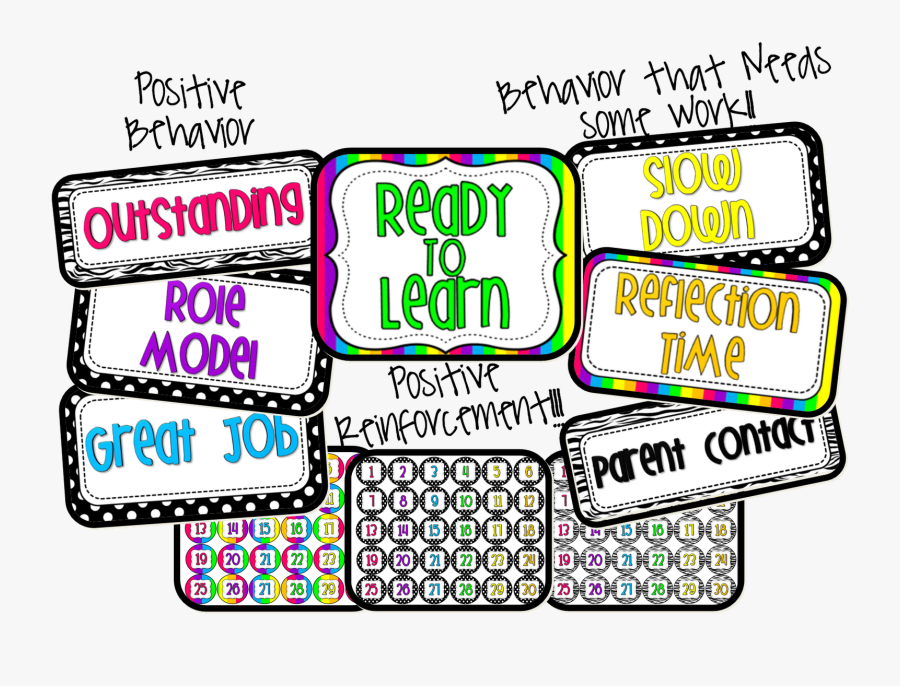 Positive
Behavior
Behavior that Needs
some Work!!
Outstanding
Role
Model
Great Job
Ready
to
Learn
Slow
Down
Reflection
Time
Parent Contact
Positive
Reinforcement!!!
13 14 15 16 17
19 20 21 22 23
25 26 27 28 29
1 2 3 4 5 6
7 8 9 10 11 12
13 14 15 16 17 18
19 20 21 22 23 24
25 26 27 28 29 30
1
7
13 14 15 16 17 18
19 20 21 22 23 24
25 26 27 28 29 30